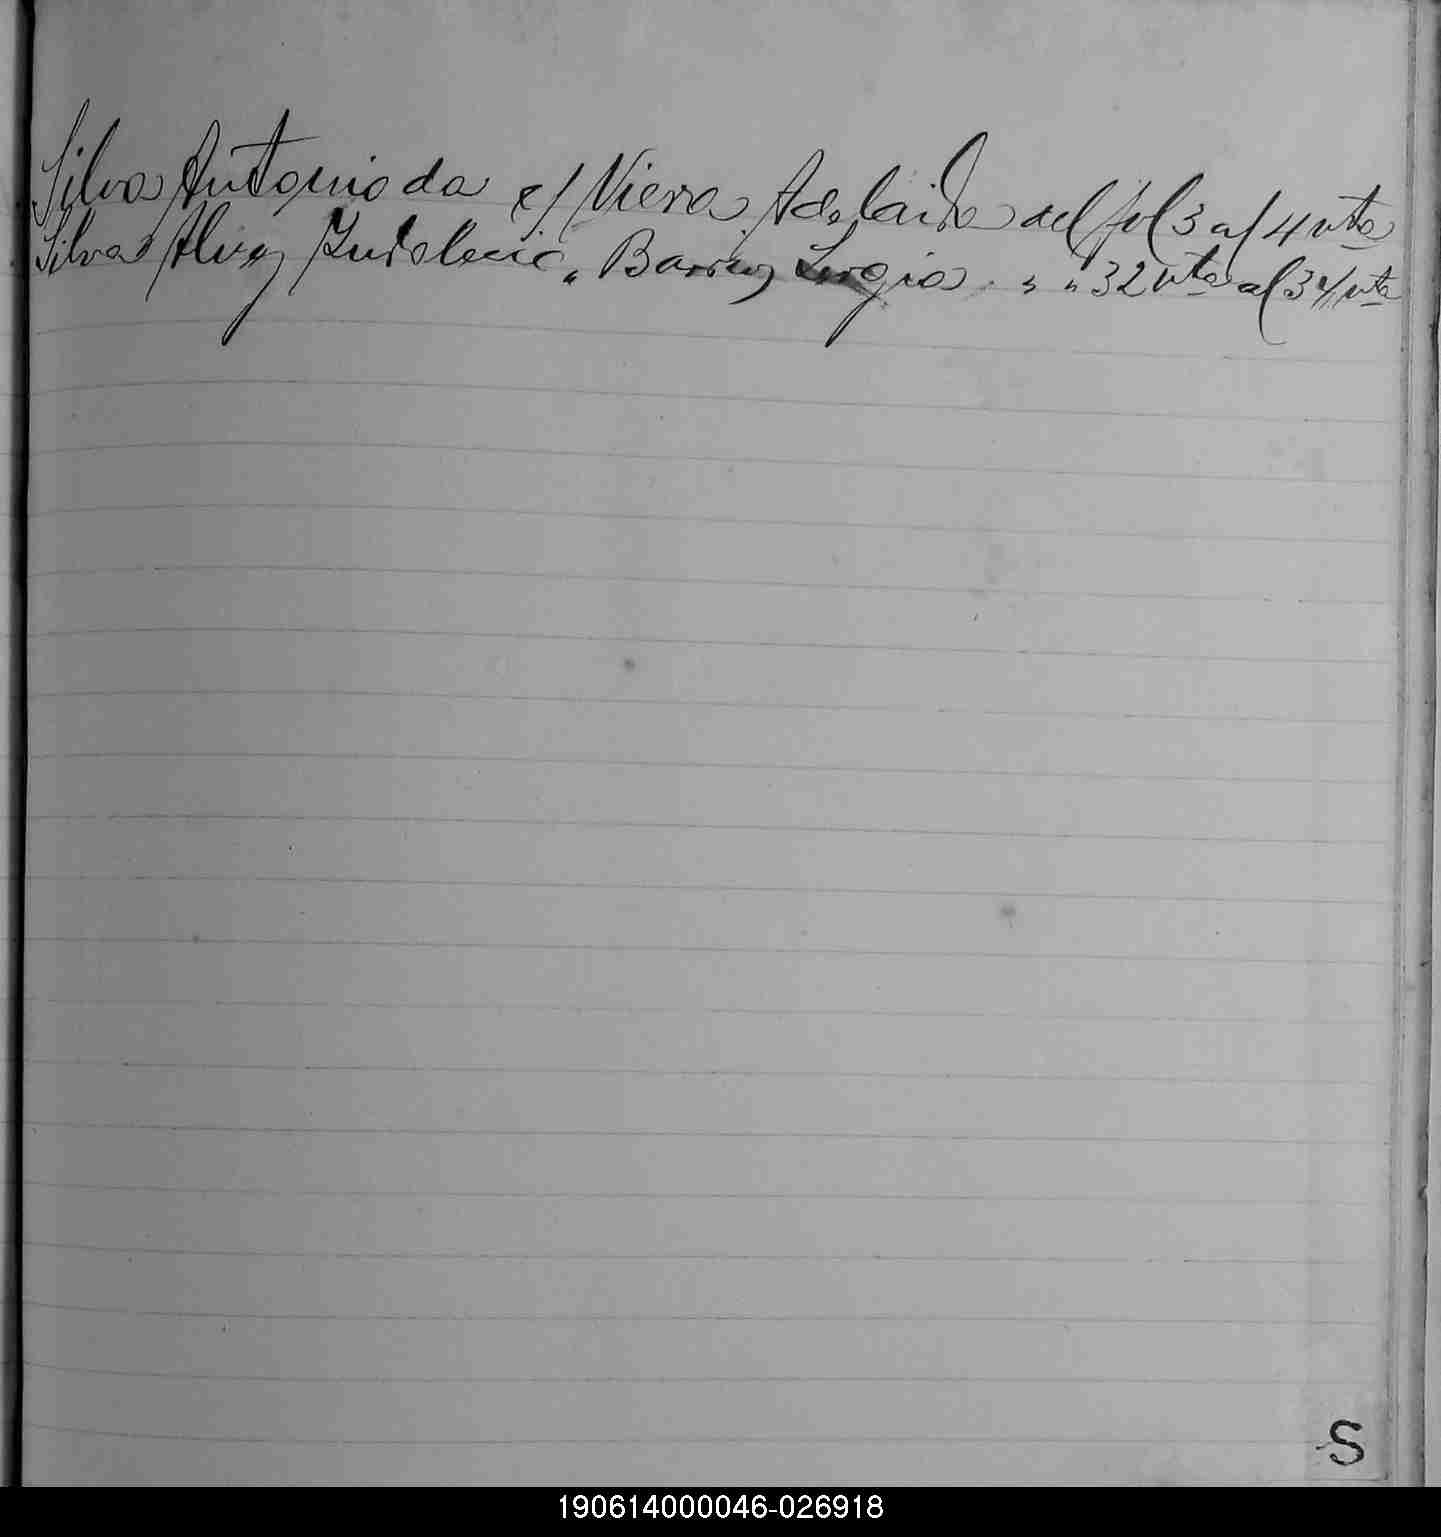 Silva Antonio da c/ Viera Adelaida del fol 3 al 4 vta
Silva Alvez " Barrios Sergio " " 32 vta al 34 vta
S
190614000046-026918